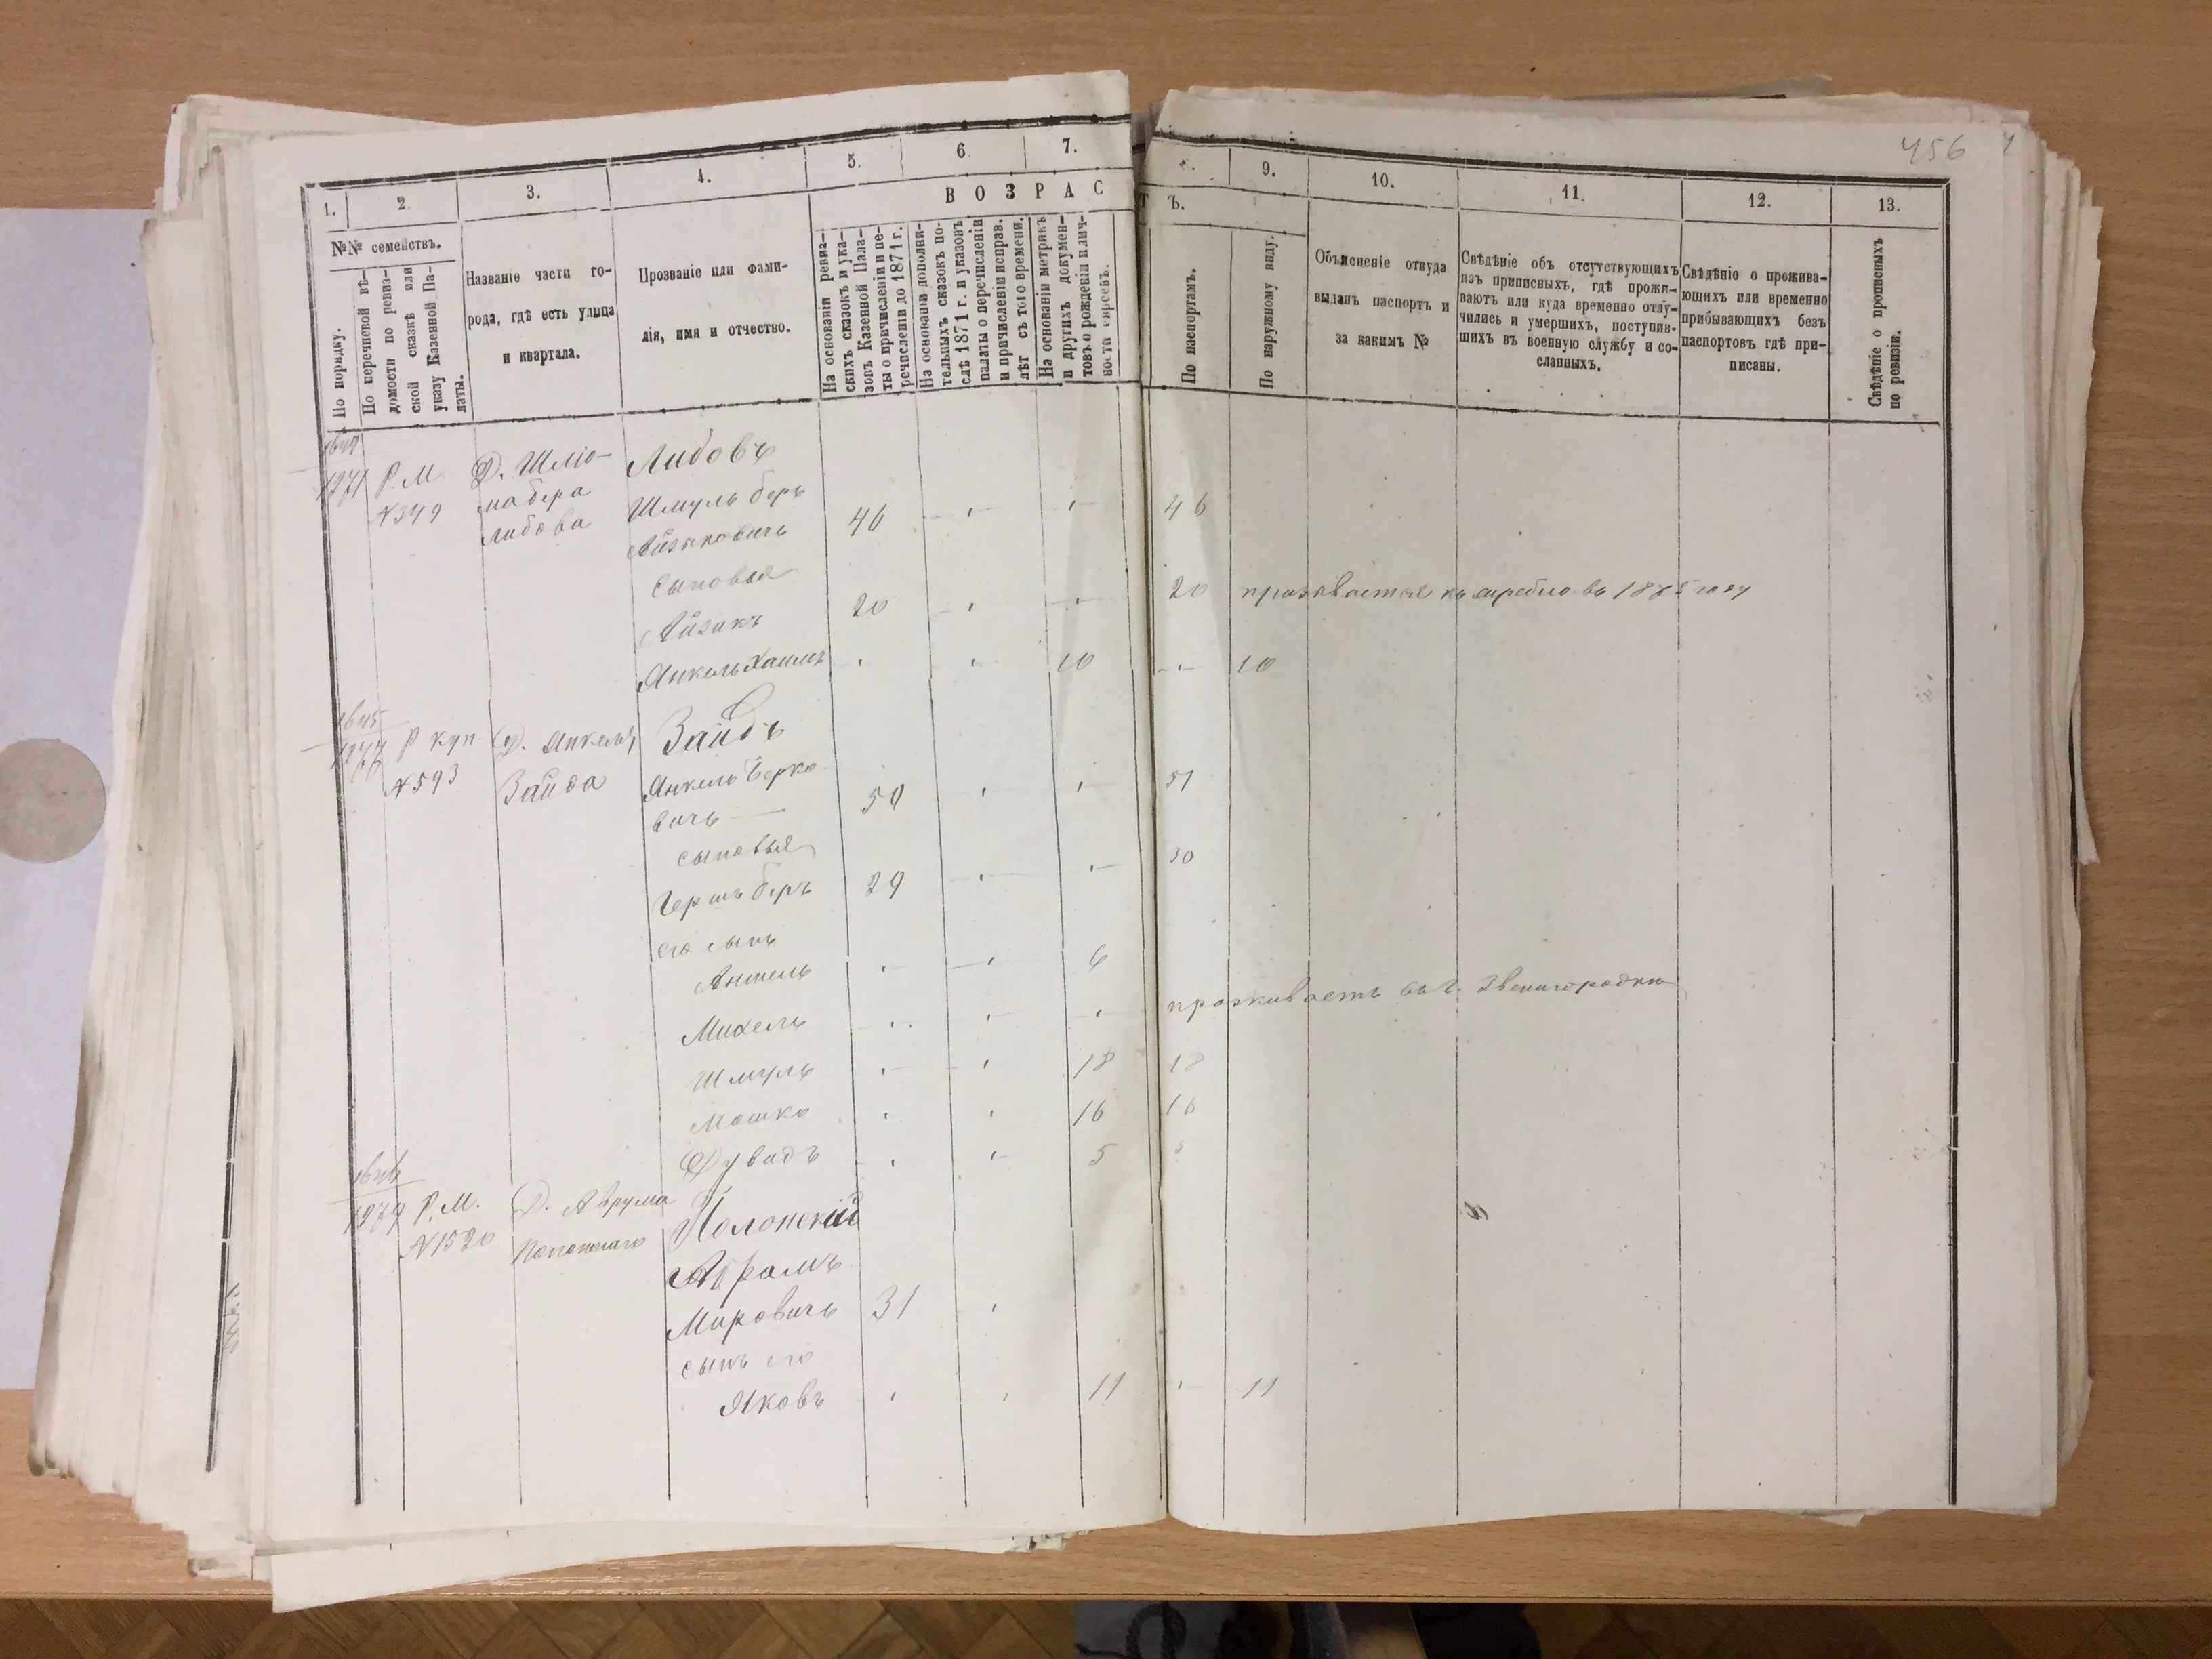 456
1.
2.
3.
4.
5.
6.
7.
9.
10.
11.
12.
13.
№№ семействъ.
В О З Р А С Т Ъ.
По порядку.
По перечневой вѣ-
домости по ревиз-
ской сказкѣ или
указу Казенной Па-
латы.
Названіе части го-
рода, гдѣ есть улица
и квартала.
Прозваніе или фами-
лія, имя и отчество.
На основаніи ревиз-
скихъ сказокъ и ука-
зовъ Казенной Пала-
ты о причисленіи и пе-
речисленіи до 1871 г.
На основаніи дополни-
тельныхъ сказокъ по-
слѣ 1871 г. и указовъ
палаты о перечисленіи
и причисленіи исправ.
лѣт съ того времени.
На основаніи метрикъ
и другихъ докумен-
товъ о рожденіи и лич-
ности евреевъ.
По паспортамъ.
По наружному виду.
Объясненіе откуда
выданъ паспортъ и
за какимъ №
Свѣдѣніе объ отсутствующихъ
изъ приписныхъ, гдѣ прожи-
ваютъ или куда временно отлу-
чились и умершихъ, поступив-
шихъ въ военную службу и со-
сланныхъ.
Свѣдѣніо о прожива-
ющихъ или временно
прибывающихъ безъ
паспортовъ гдѣ при-
писаны.
Свѣдѣніо о прописныхъ
по ревизіи.
Р. М Д. Шмю- Либовъ
№349 ля бера Шмуль беръ
либова Айзиковичь 46 46
сыновья
Айзикъ 20 20 призывается къ жребію въ 1875 году
Янкель Хаимъ 10 10
Р куп Д. Янкеля Зайдъ
№593 Зайда Янкель Берко-
вичь 50 51
сыновья
Гершъ беръ 29 30
его сынъ
Аншель 6
Михель проживаетъ въ г. Звенигородки
Шмуль 18 18
Мошко 16 16
Дувидъ 5 5
Р. М. Д. Аврума Полонскій
№1520 Полонскаго Абрамъ
Мировичь 31
сынъ его
Яковъ 11 11